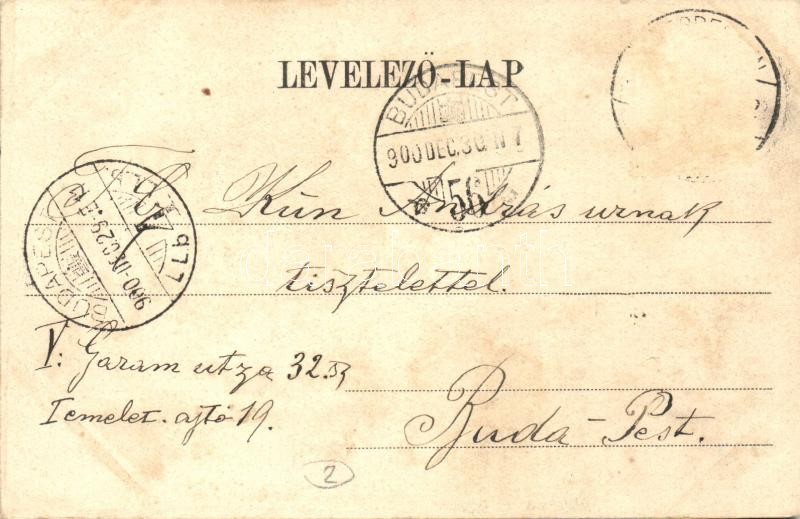 LEVELEZŐ-LAP
BUDAPEST
900 DEC. 30 N 7
56
BUDAPEST
900 DEC 29
Kún András urnak
tisztelettel.
V: Garam utza 32. sz
I emelet. ajtó 19.
Buda-Pest.
2